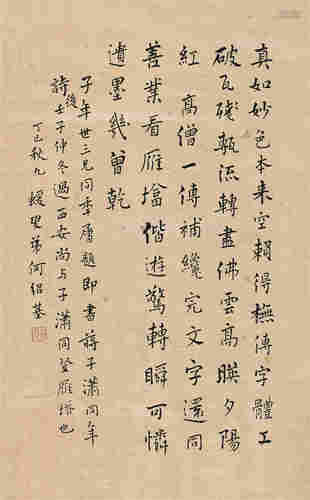 真如妙色本来空賴得橅傳字體工
破瓦殘甎流轉盡佛雲高映夕陽
紅 高僧一傳補纔完文字還同
善業看雁墖偕遊驚轉瞬可憐
遺墨幾曾乾
子年世三兄同年屬題即書蔣子瀟同年
詩後壬子仲冬過西安尚与子瀟同登雁墖也
丁巳秋九 蝯叟弟何紹基